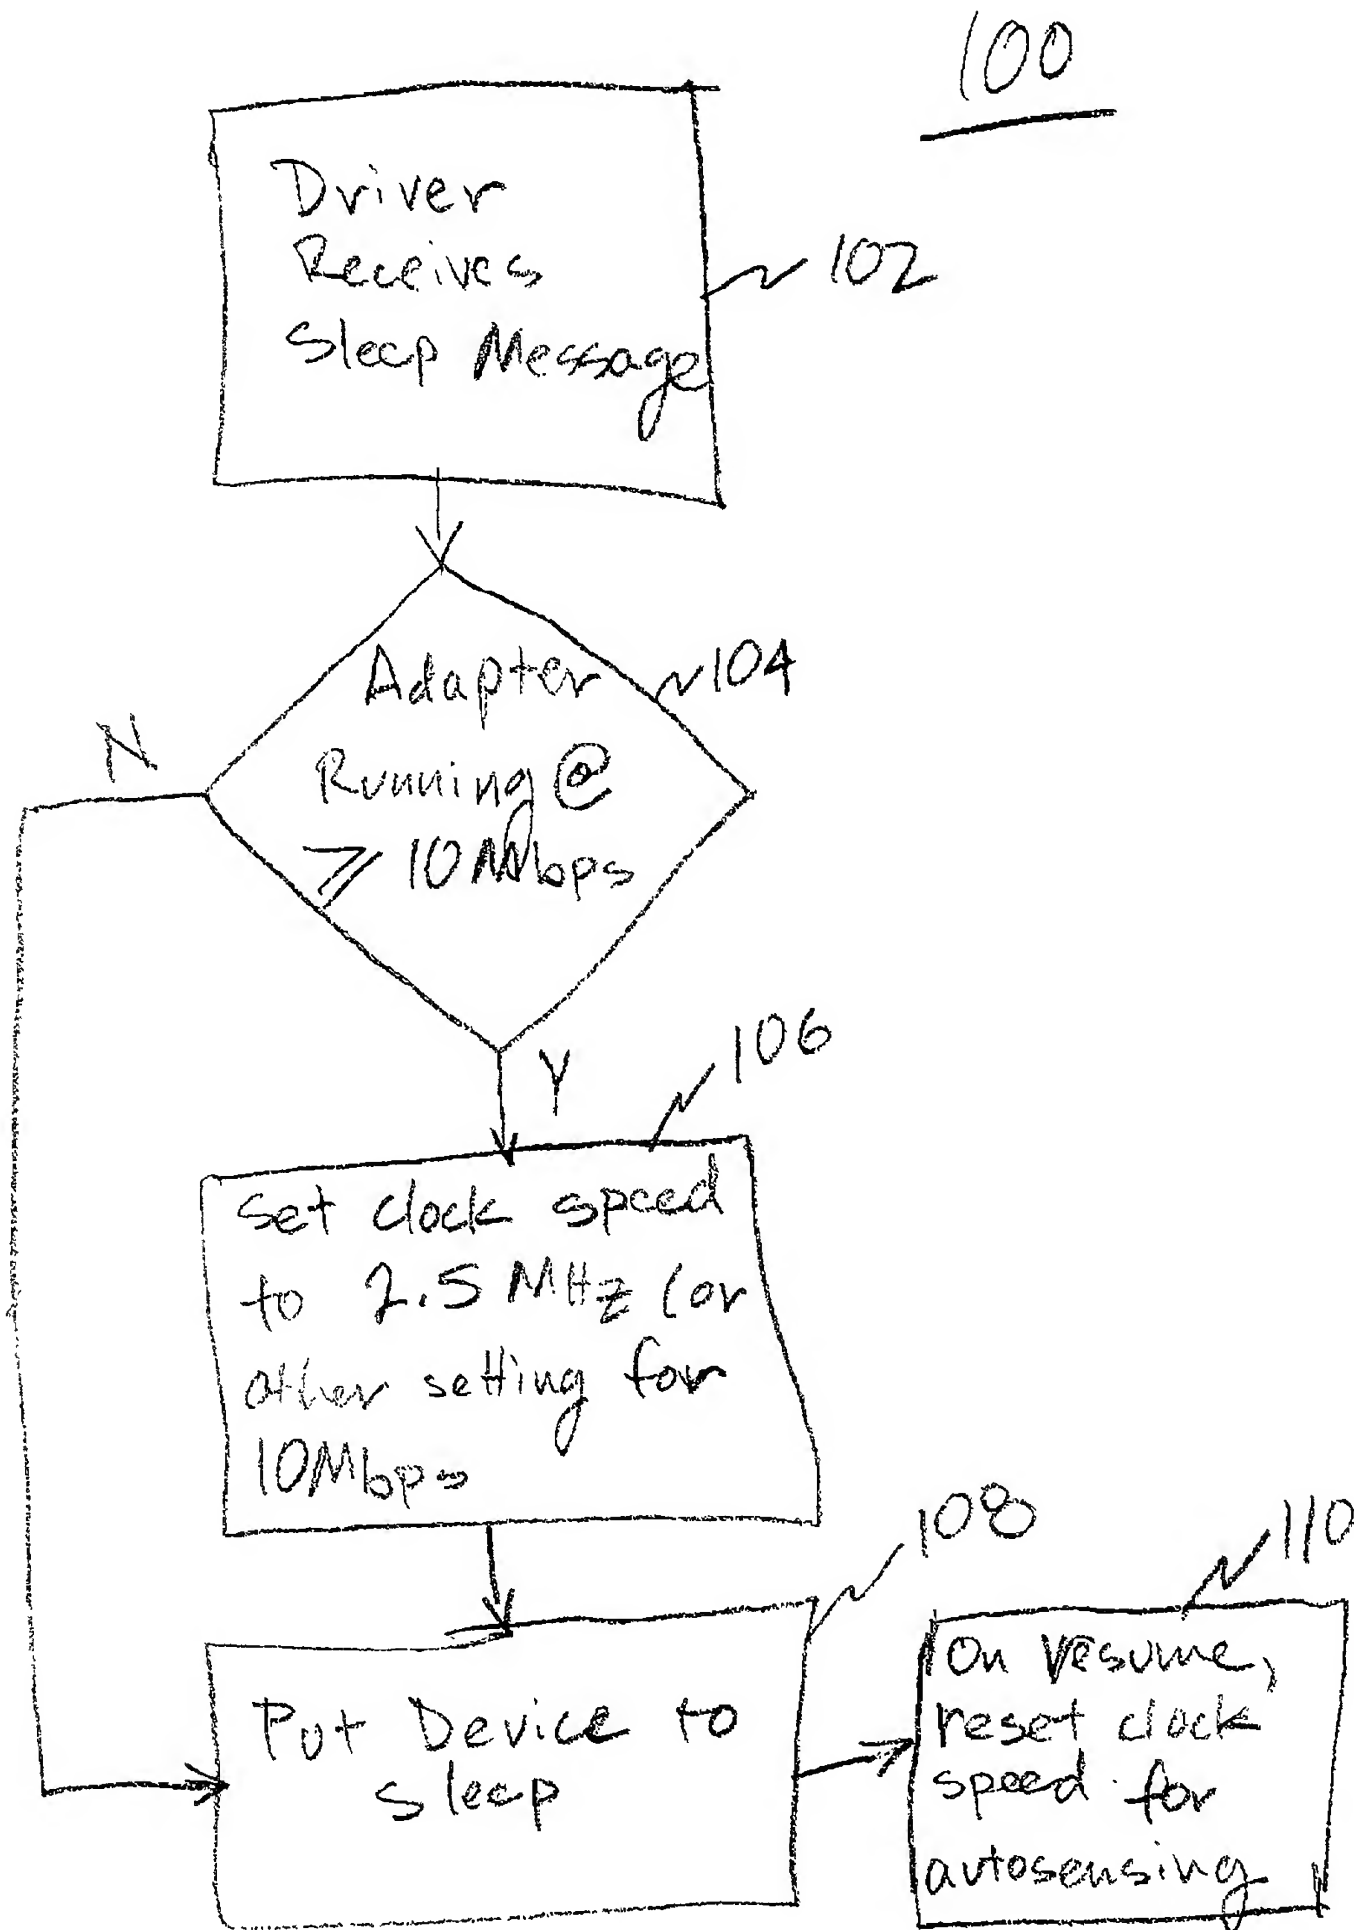 100
Driver
Receives
Sleep Message
102
Adapter
Running @
≥ 10Mbps
104
N
Y
106
Set clock speed
to 2.5 MHz (or
other setting for
10Mbps
108
Put Device to
sleep
110
On resume,
reset clock
speed for
autosensing